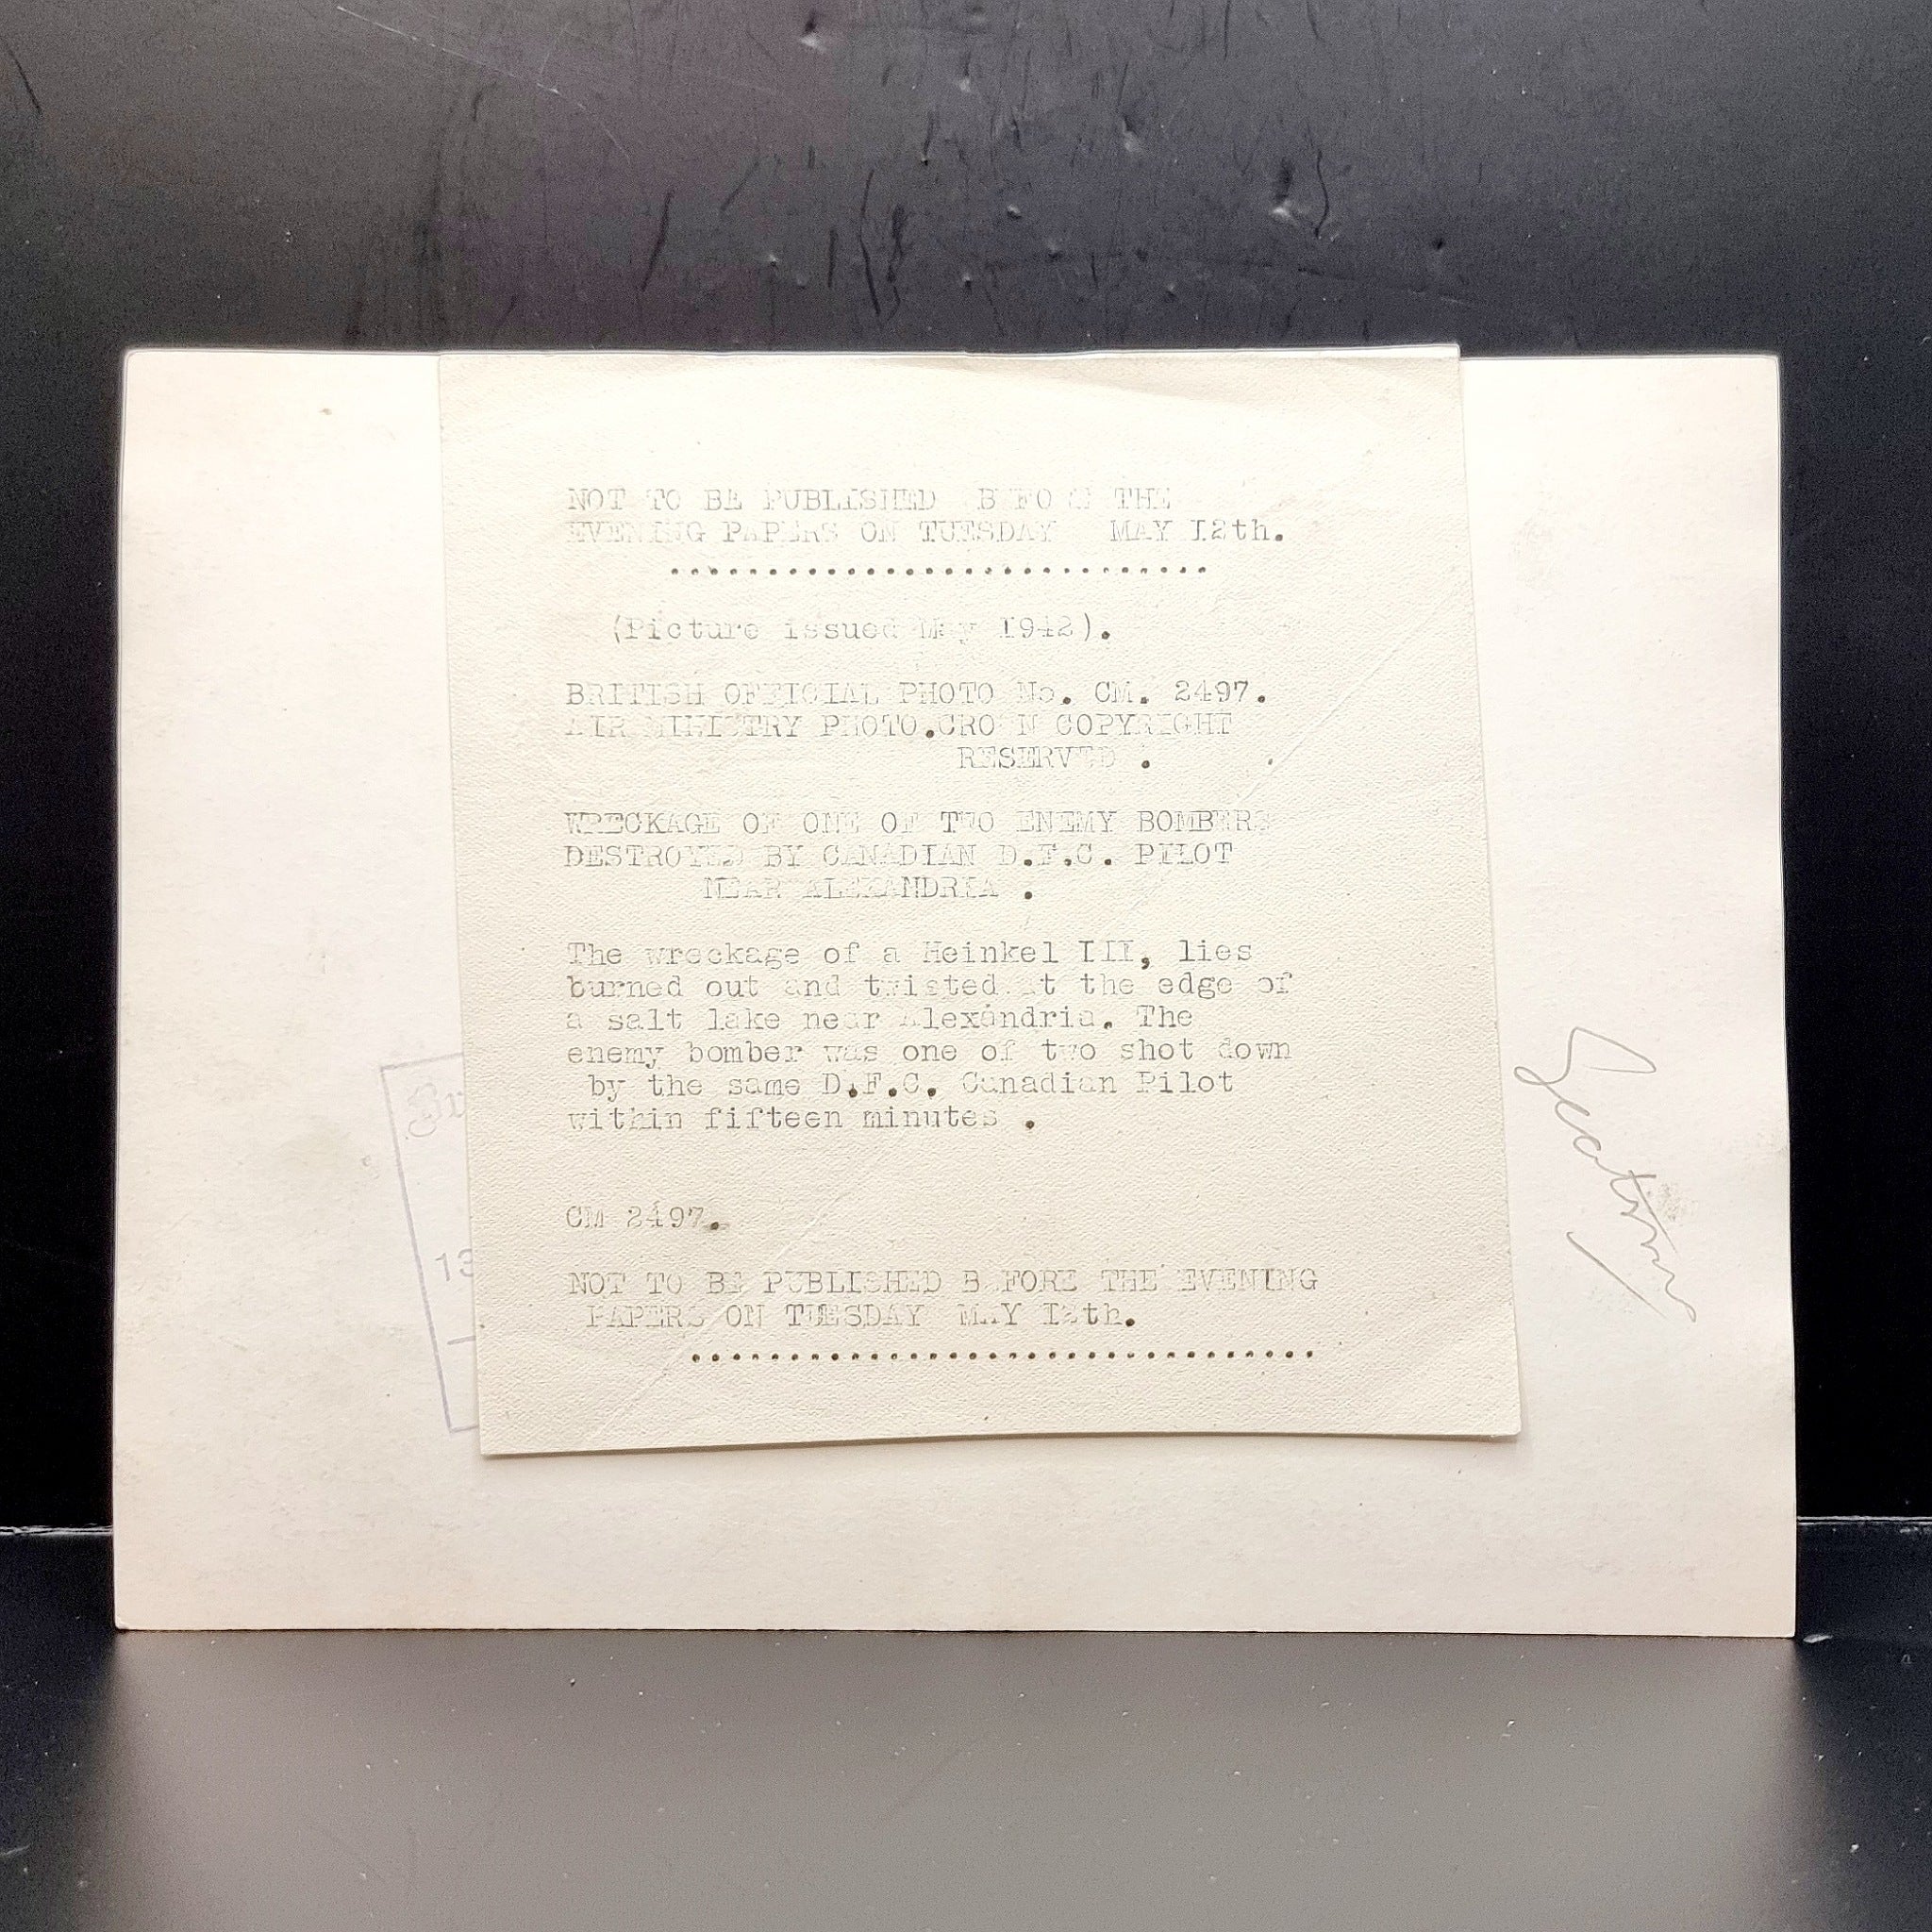 NOT TO BE PUBLISHED BEFORE THE
EVENING PAPERS ON TUESDAY MAY 12th.
............................
(Picture issued May 1942).
BRITISH OFFICIAL PHOTO No. CM. 2497.
AIR MINISTRY PHOTO.CROWN COPYRIGHT
RESERVED .
WRECKAGE OF ONE OF TWO ENEMY BOMBERS
DESTROYED BY CANADIAN D.F.C. PILOT
NEAR ALEXANDRIA .
The wreckage of a Heinkel III, lies
burned out and twisted at the edge of
a salt lake near Alexandria. The
enemy bomber was one of two shot down
by the same D.F.C. Canadian Pilot
within fifteen minutes .
CM 2497.
NOT TO BE PUBLISHED BEFORE THE EVENING
PAPERS ON TUESDAY MAY 12th.
................................
13